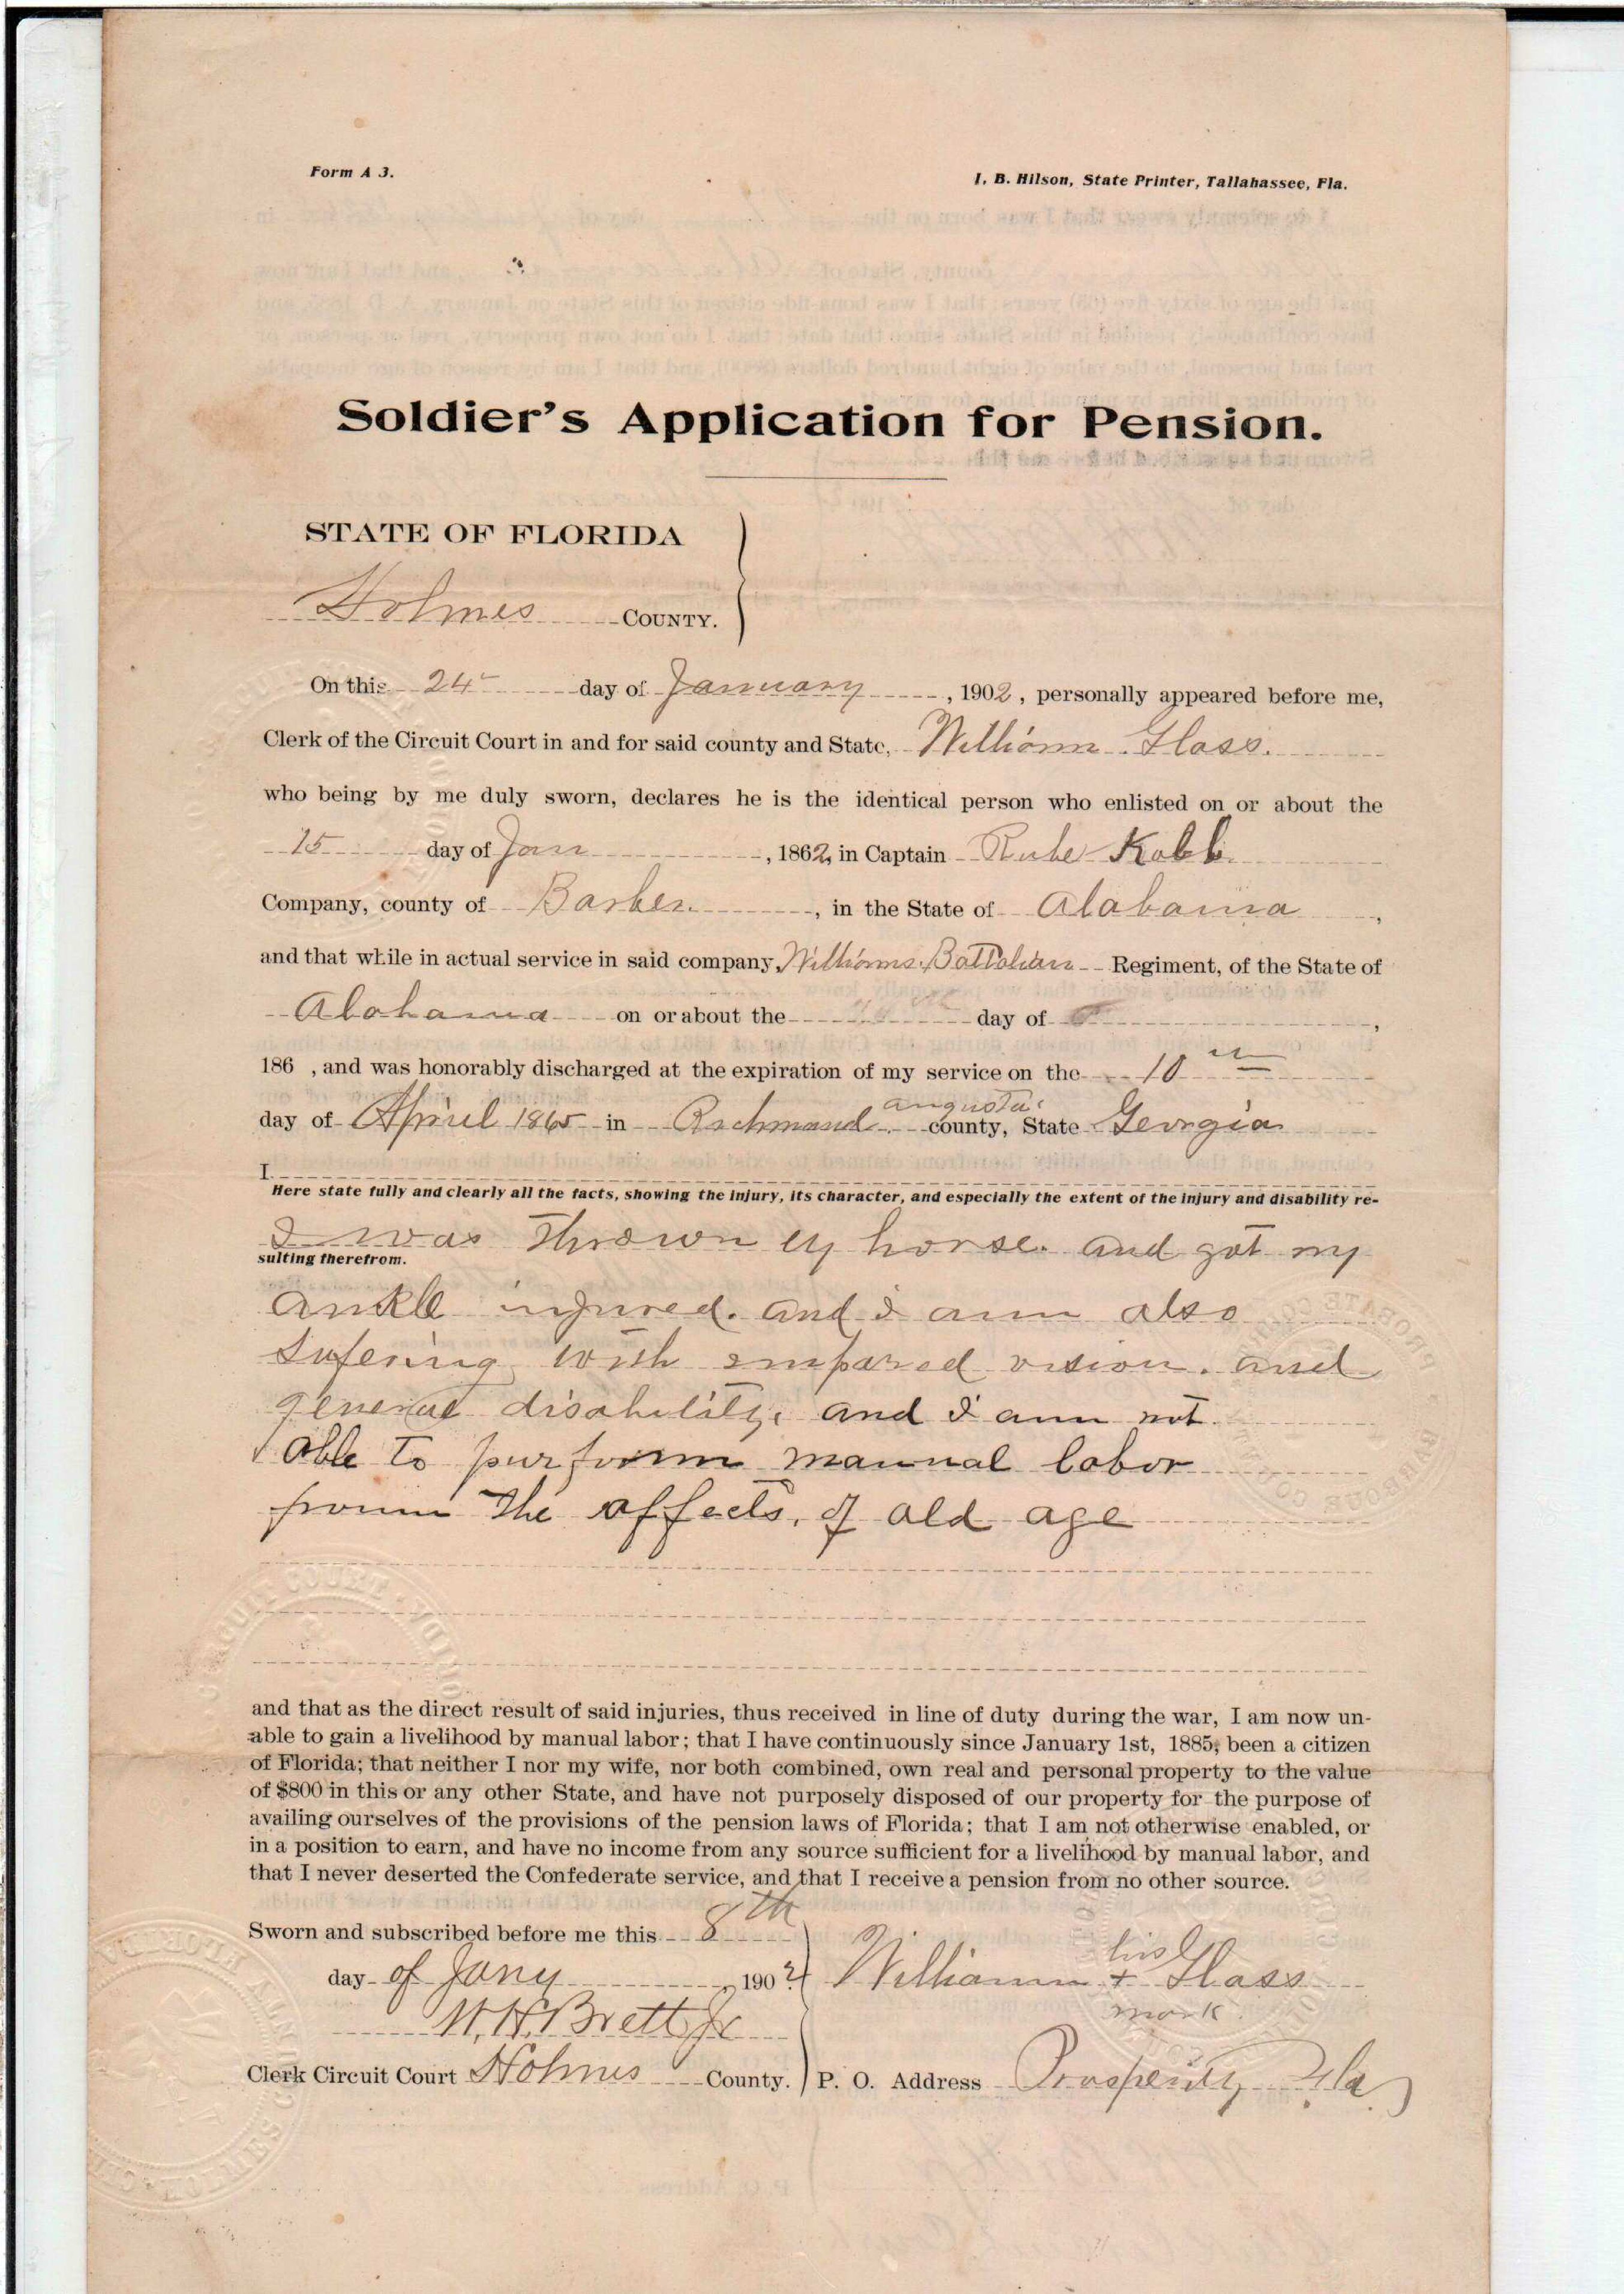 Form A 3.
I. B. Hilson, State Printer, Tallahassee, Fla.
Soldier's Application for Pension.
STATE OF FLORIDA
Holmes COUNTY.
On this 24 day of January, 1902, personally appeared before me,
Clerk of the Circuit Court in and for said county and State, William Glass.
who being by me duly sworn, declares he is the identical person who enlisted on or about the
15 day of Jan, 1862, in Captain Rube Kolb
Company, county of Barber, in the State of Alabama,
and that while in actual service in said company, Williams Battalian Regiment, of the State of
Alabama on or about the day of,
186 , and was honorably discharged at the expiration of my service on the 10th
day of April 1865 in Richmand augusta county, State Georgia
I
Here state fully and clearly all the facts, showing the injury, its character, and especially the extent of the injury and disability re-
I was Thrown by horse. and got my
sulting therefrom.
ankle injured. and I am also
sufering with impared vision. and
general disability, and I am not
able to purform manual labor
from the affects, of old age
and that as the direct result of said injuries, thus received in line of duty during the war, I am now un-
able to gain a livelihood by manual labor; that I have continuously since January 1st, 1885, been a citizen
of Florida; that neither I nor my wife, nor both combined, own real and personal property to the value
of $800 in this or any other State, and have not purposely disposed of our property for the purpose of
availing ourselves of the provisions of the pension laws of Florida; that I am not otherwise enabled, or
in a position to earn, and have no income from any source sufficient for a livelihood by manual labor, and
that I never deserted the Confederate service, and that I receive a pension from no other source.
Sworn and subscribed before me this 8th
day of Jany, 1902 William his + mark Glass
W. H. Brett Jr
Clerk Circuit Court Holmes County. P. O. Address Prosperity Fla.